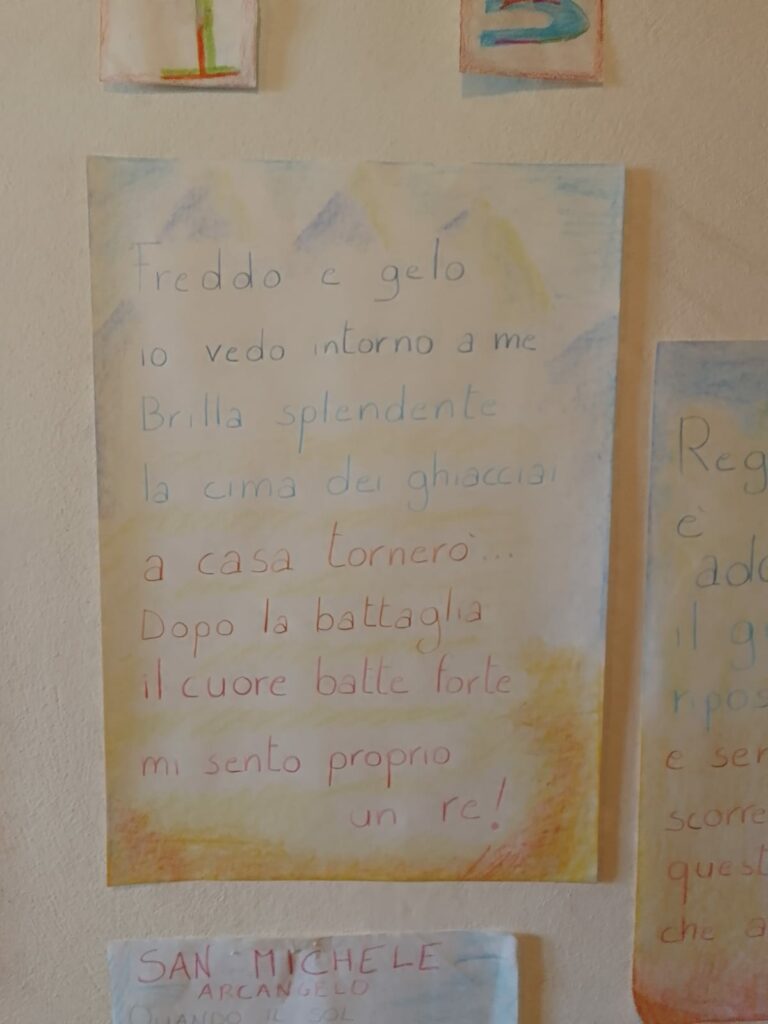 Freddo e gelo
io vedo intorno a me
Brilla splendente
la cima dei ghiacciai
a casa tornerò...
Dopo la battaglia
il cuore batte forte
mi sento proprio
un re!
Reg
è
ado
il g
ripos
e ser
scorre
quest
che a
SAN MICHELE
ARCANGELO
QUANDO IL SOL